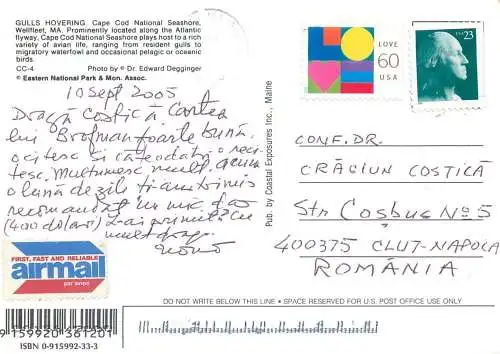 GULLS HOVERING. Cape Cod National Seashore,
Wellfleet, MA. Prominently located along the Atlantic
flyway, Cape Cod National Seashore plays host to a rich
variety of avian life, ranging from resident gulls to
migratory waterfowl and occasional pelagic or oceanic
birds.
CC-4 Photo by © Dr. Edward Degginger
© Eastern National Park & Mon. Assoc.
10 Sept 2005
Dragă Costică Cartea
lui Brofman foarte bună.
o citesc si câteodată o reci-
tesc. Multumesc mult. acum
o lună de zile ti-am trimis
recomandat un mic
(400 dolari) L-ai primit? Cu
mult drag
Pub. by Coastal Exposures Inc., Maine
LOVE
60
USA
USA 23
CONF. DR.
CRĂCIUN COSTICĂ
Str. Cosbuc No 5
400375 CLUJ-NAPOCA
ROMÂNIA
FIRST, FAST AND RELIABLE
airmail
par avion
DO NOT WRITE BELOW THIS LINE • SPACE RESERVED FOR U.S. POST OFFICE USE ONLY
9 159920 361201
ISBN 0-915992-33-3